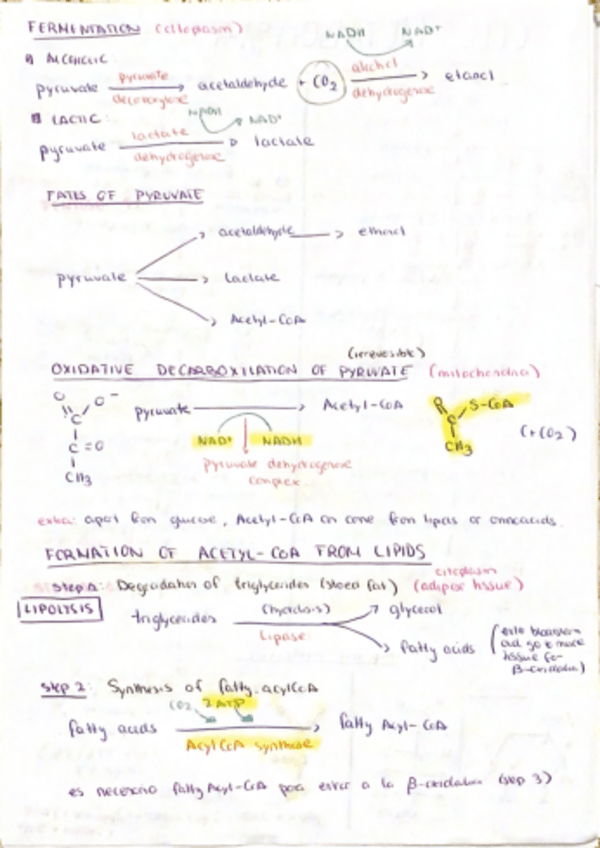 FERMENTATION (citoplasm)
NADH NAD+
ALCOHOLIC:
pyruvate pyruvate decarboxylase acetaldehyde + CO2 alcohol dehydrogenase etanol
LACTIC:
NADH NAD+
pyruvate lactate dehydrogenase lactate
FATES OF PYRUVATE
acetaldehyde ethanol
pyruvate Lactate
Acetyl-CoA
(irreversible)
OXIDATIVE DECARBOXILATION OF PYRUVATE (mitochondria)
O O- C C=O CH3
pyruvate Acetyl-CoA
NAD+ NADH
Pyruvate dehydrogenase
complex
S-CoA C CH3
(+CO2)
extra: apart from glucose, Acetyl-CoA can come from lipids or aminoacids.
FORMATION OF ACETYL-COA FROM LIPIDS
citoplasm
Step 1: Degradation of triglycerides (stored fat) (adipose tissue)
LIPOLYSIS
triglycerides (hydrolisis) Lipase glycerol
fatty acids
(into bloodstream
and go to
tissue for
β-oxidation)
Step 2: Synthesis of fatty-acylCoA
2 ATP
fatty acids Acyl CoA synthase fatty Acyl-CoA
es necesario fatty Acyl-CoA para entrar a la β-oxidation (step 3)